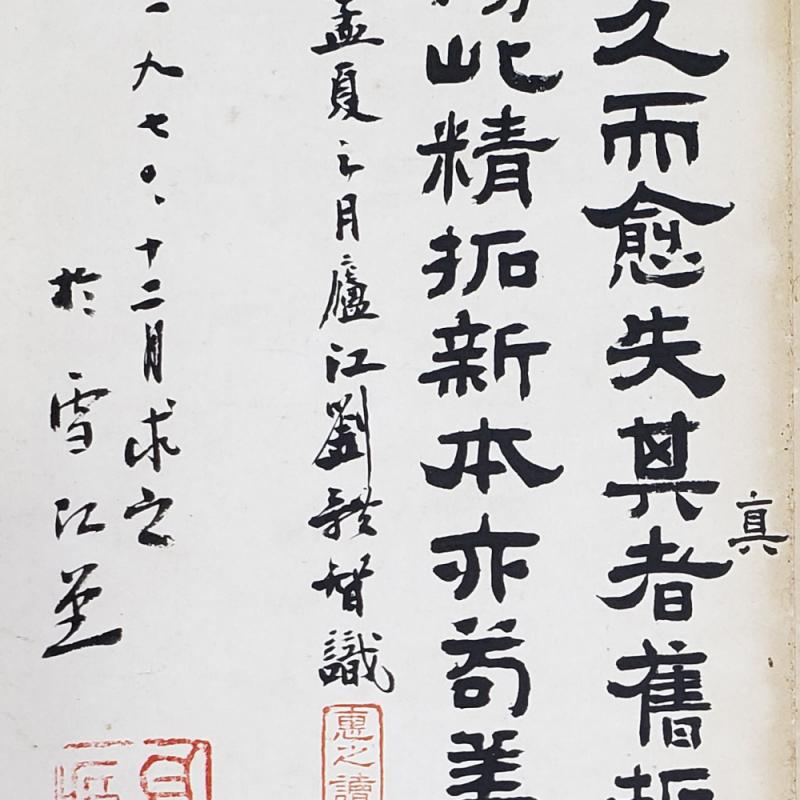 真
久而愈失其者舊拓
此精拓新本亦苟
孟夏之月廬江劉體智識
惠之讀
一九七〇、十二月求之
於雪江堂